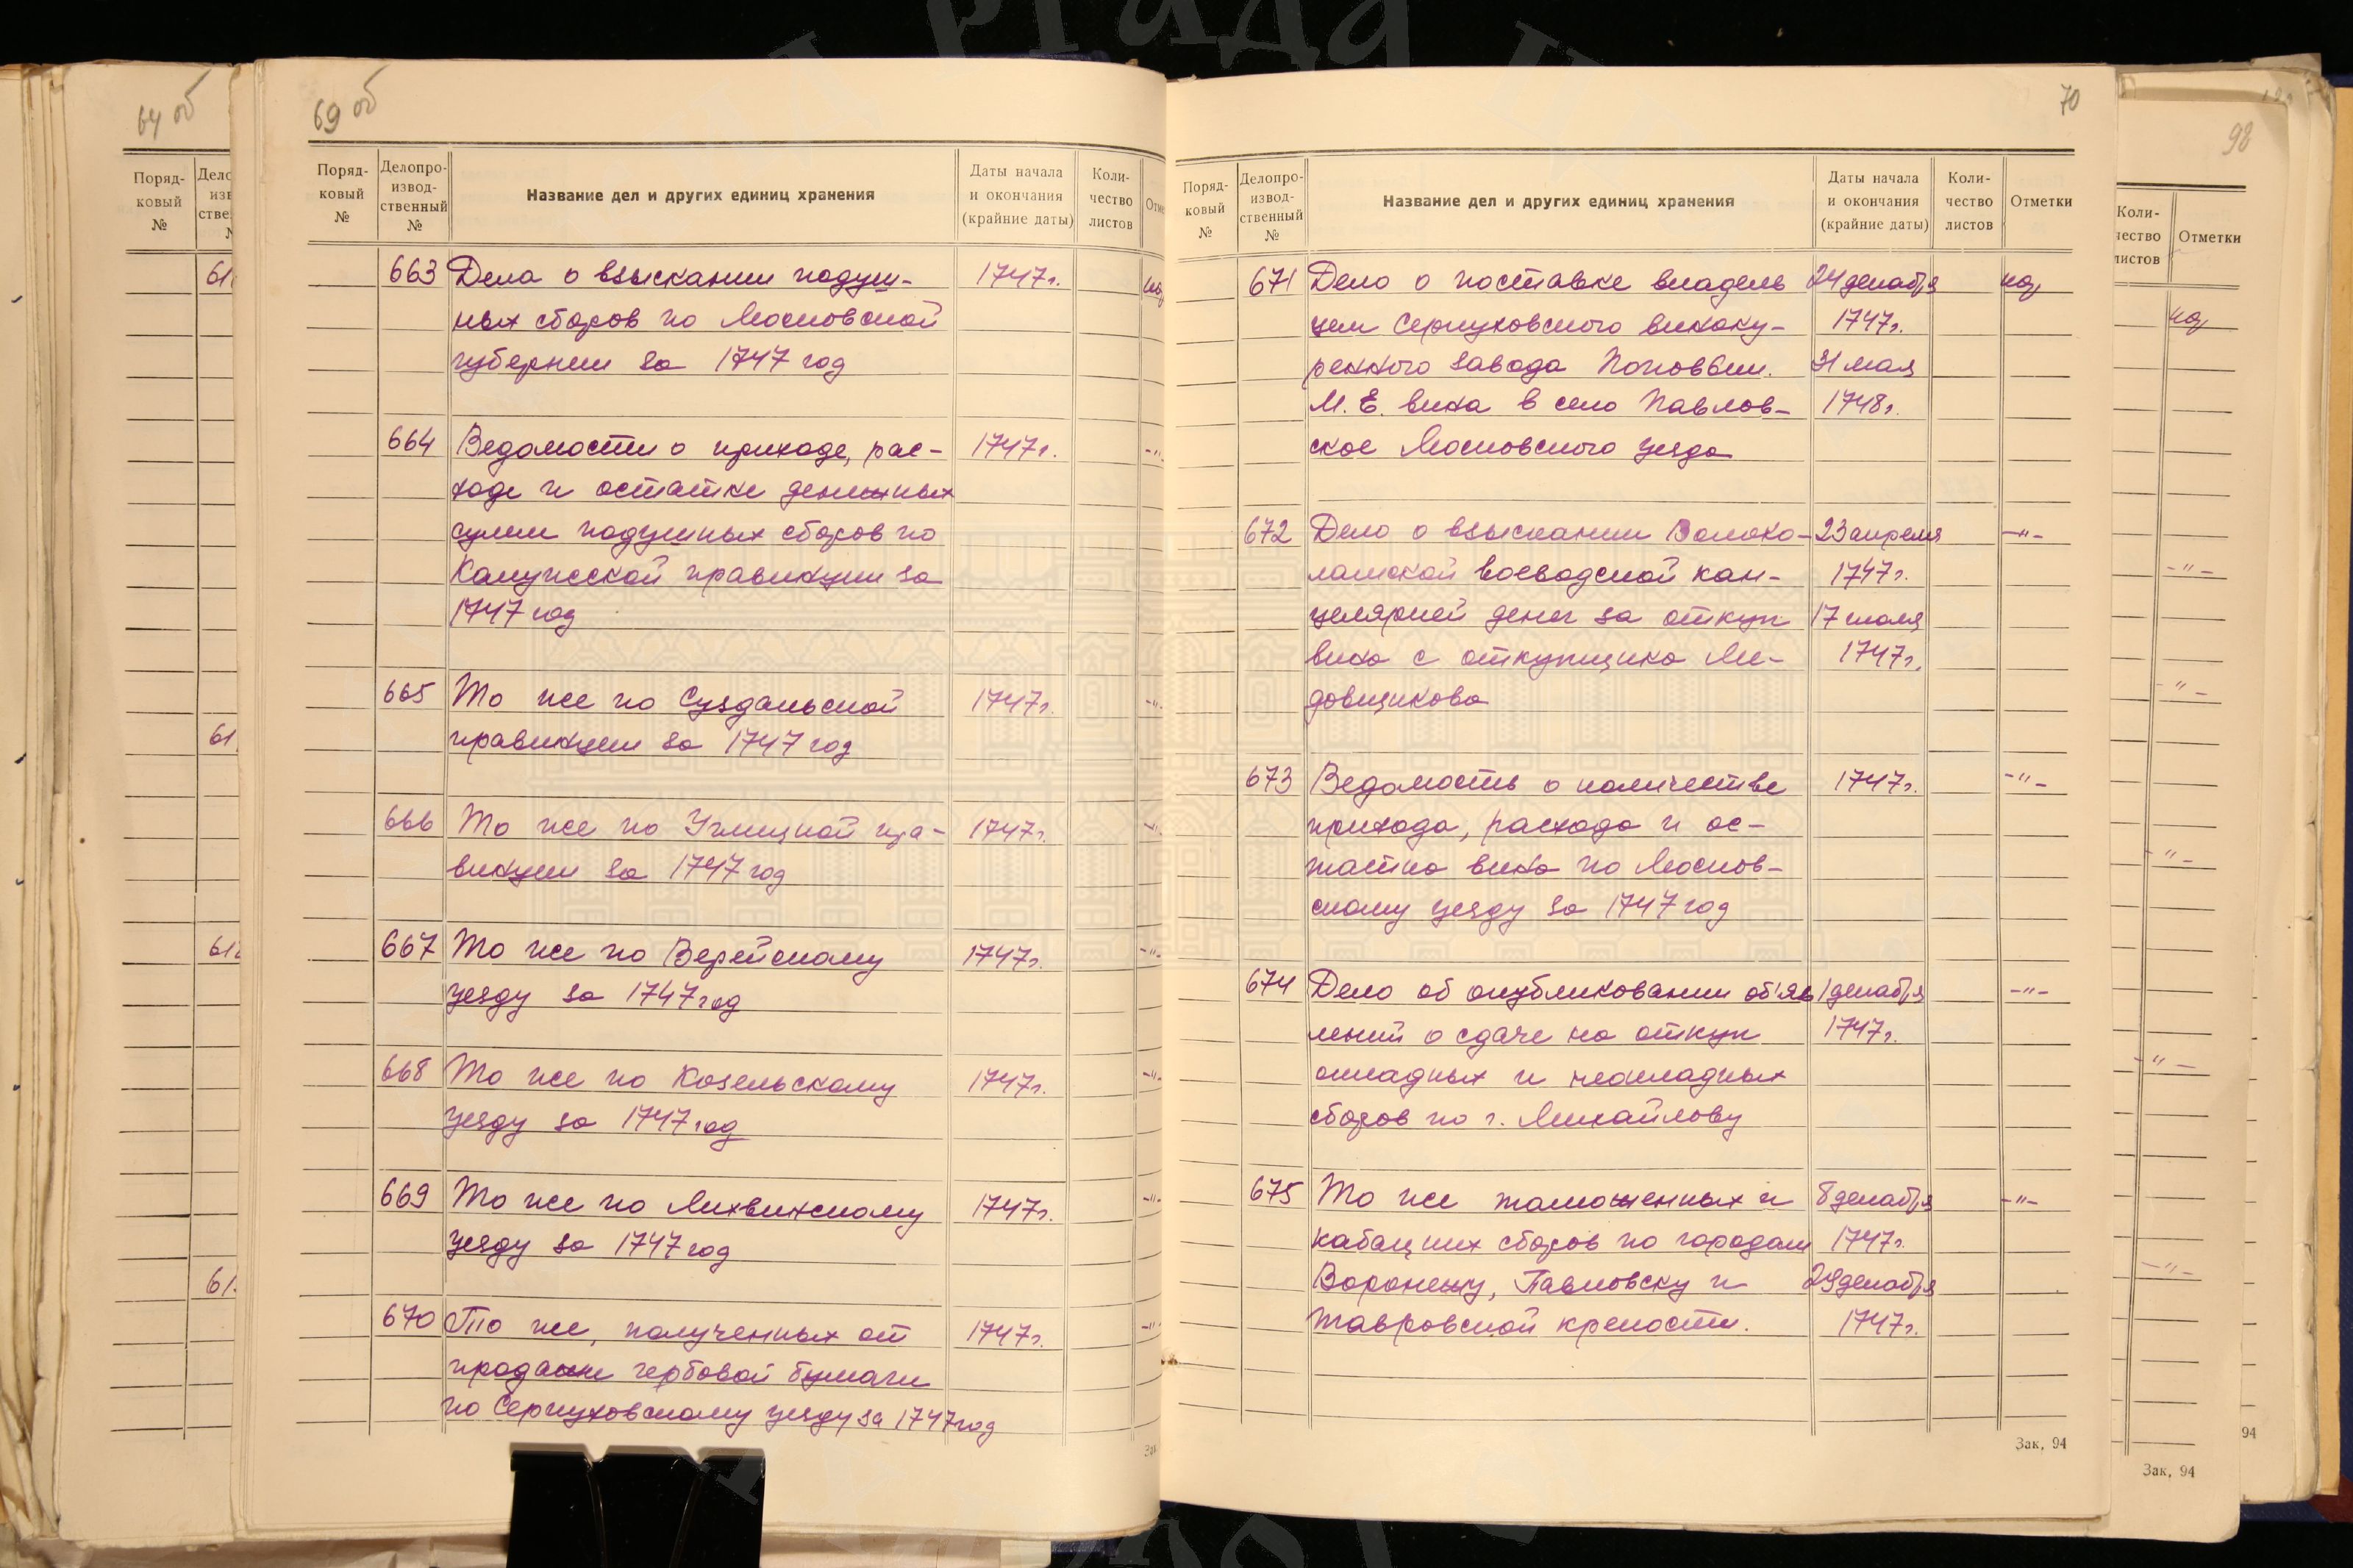 64 об
Поряд-
ковый
№
69 об
Поряд-
ковый
№
Делопро-
извод-
ственный
№
Название дел и других единиц хранения
Даты начала
и окончания
(крайние даты)
Коли-
чество
листов
663 Дела о взыскании подуш- 1747 г.
ных сборов по Московской
губернии за 1747 год
664 Ведомости о приходе, рас- 1747 г. -"-
ходе и остатке денежных
сумм подушных сборов по
Калужской правинции за
1747 год
665 То же по Суздальской 1747 г. -"-
правинции за 1747 год
666 То же по Углицкой пра- 1747 г. -"-
винции за 1747 год
667 То же по Верейскому 1747 г. -"-
уезду за 1747 год
668 То же по Козельскому 1747 г. -"-
уезду за 1747 год
669 То же по Лихвинскому 1747 г. -"-
уезду за 1747 год
670 То же, полученных от 1747 г. -"-
продажи гербовой бумаги
по Серпуховскому уезду за 1747 год
70
Поряд-
ковый
№
Делопро-
извод-
ственный
№
Название дел и других единиц хранения
Даты начала
и окончания
(крайние даты)
Коли-
чество
листов
Отметки
671 Дело о поставке владель 24 декабря
цем Серпуховского виноку- 1747 г.
ренного завода 31 мая
М. Е. вина в село Павлов- 1748 г.
ское Московского уезда
672 Дело о взыскании Волоко- 23 апреля -"-
ламской воеводской кан- 1747 г.
целярией денег за откуп 17 июля
вина с откупщика Ме- 1747 г.
довщикова
673 Ведомость о количестве 1747 г. -"-
прихода, расхода и ос-
татка вина по Москов-
скому уезду за 1747 год
674 Дело об опубликовании об'яв 1 декабря -"-
лений о сдаче на откуп 1747 г.
окладных и неокладных
сборов по г. Михайлову
675 То же таможенных и 8 декабря -"-
кабацких сборов по городам 1747 г.
Воронежу, Павловску и 29 декабря
Тавровской крепости. 1747 г.
Зак. 94
98
Коли-
чество
листов
Отметки
-"-
-"-
-"-
-"-
-"-
Зак. 94
94